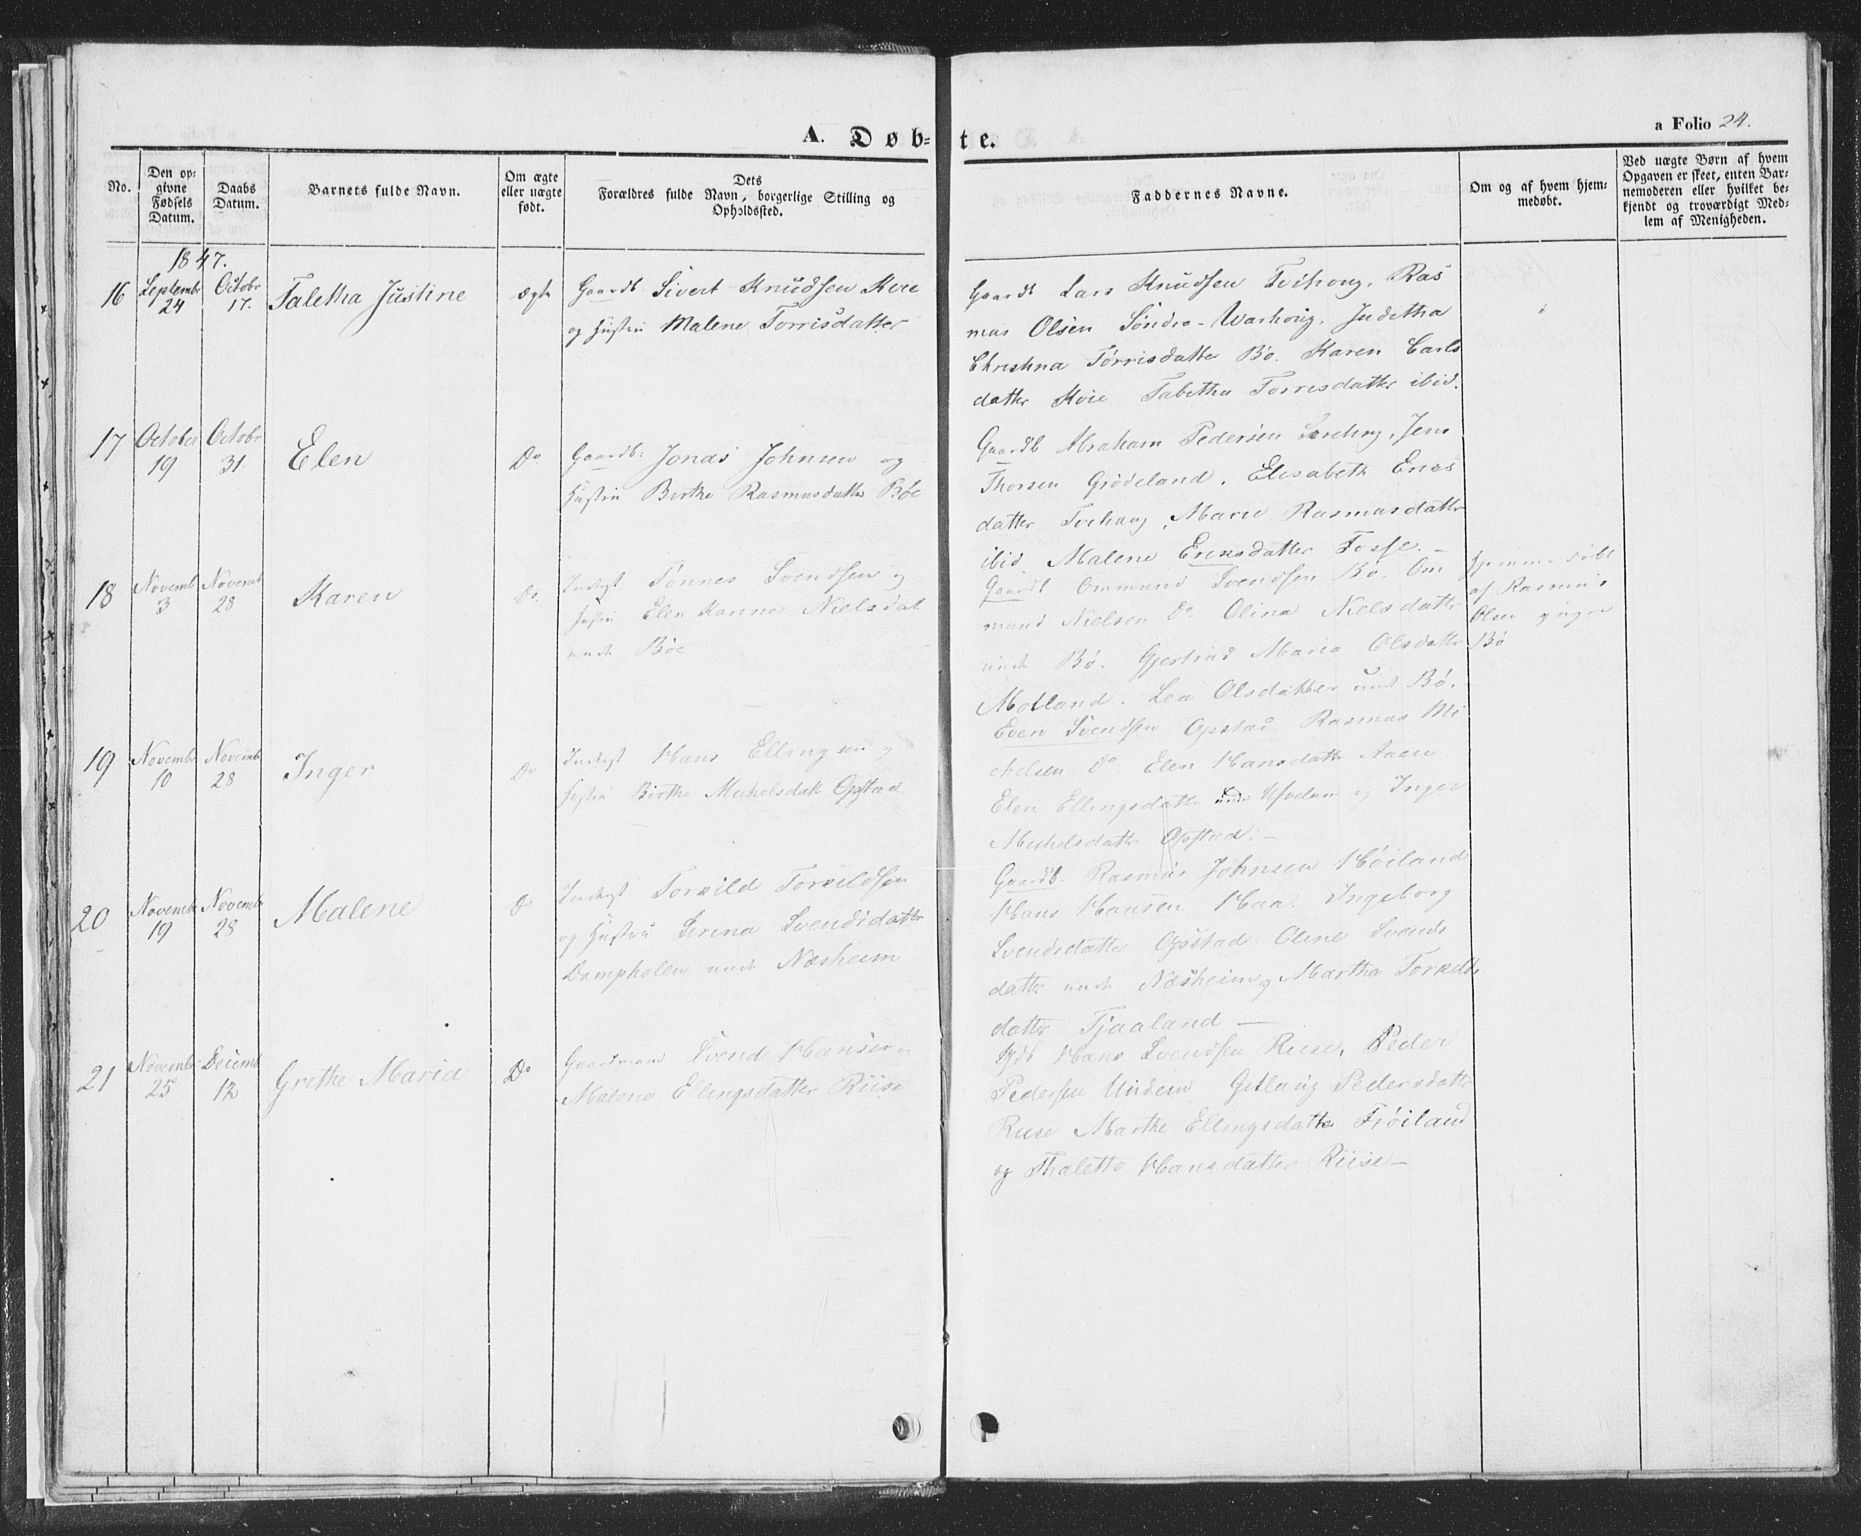 A. Døb=te.
a Folio 24.
No.
Den opgivne Fødsels Datum.
Daabs Datum.
Barnets fulde Navn.
Om ægte eller uægte født.
Dets Forældres fulde Navn, borgerlige Stilling og Opholdssted.
Faddernes Navne.
Om og af hvem hjemmedøbt.
Ved uægte Børn af hvem Opgaven er skeet, enten Barnemoderen eller hvilket bekjendt og troværdigt Medlem af Menigheden.
1847.
16 Septembr 24 Octobr 17. Taletha Justine ægte
Gaardb Sivert Knudsen Kvie
og Hustru Malene Torrisdatter
Gaardb Lars Knudsen Tvihoug, Ras
mus Olsen Søndre-Warhoug, Judetha
Christina Tørrisdatter Bø. Karen Carls
datter Kvie Tabitha Torrisdatter ibid.
17 October 19 Octobr 31. Elen Do
Gaardb: Jonas Johnsen og
Hustru Birthe Rasmusdatter Bøe
Gaardb Abraham Pedersen Jens
Thorsen Grødeland, Elisabeth Enes
datter Tvihoug, Marie Rasmusdatter
ibid. Malene Erensdatter Fosse.
18 Novembr 3 Novemb 28 Karen Do
Inderst Tønnes Svendsen og
Hustru Elen Hanne Nielsdat
und Bøe
Gaardb Ommund Svendsen Bø. Om
mund Nielsen Do Olina Nielsdatter
und Bø. Gjertrud Maria Olsdatter
Motland. Lea Olsdatter und Bø.
Hjemmedøbt
af Rasmus
Olsen yngre
Bø
19 Novembr 10 Novemb 28 Inger Do
Inderst Hans Ellingsen og
Hustru Birthe Michelsdat Opstad
Even Svendsen Opstad Rasmus Mi
chelsen Do Elen Hansdatter Aaen
Elen Ellingsdatter og Inger
Michelsdatter Opstad.
20 Novembr 19 Novemb 28 Malene Do
Inderst Torkild Torkildsen
og Hustru Serina Svendsdatter
Dampholen und Næsheim
Gaardb. Rasmus Johnsen Høiland
Hans Hansen Haa. Ingeborg
Svendsdatter Opstad. Oline Svends
datter und Næsheim og Martha Torkilds
datter Tjaaland
21 Novembr 25 Decemb 12 Grethe Maria Do
Gaardmand Svend Hansen og
Malene Ellingsdatter Riise
Gdb Hans Svendsen Riise, Peder
Pedersen Undem Getlaug Pedersdatter
Riise Marthe Ellingsdatter Frøiland
og Thalette Hansdatter Riise